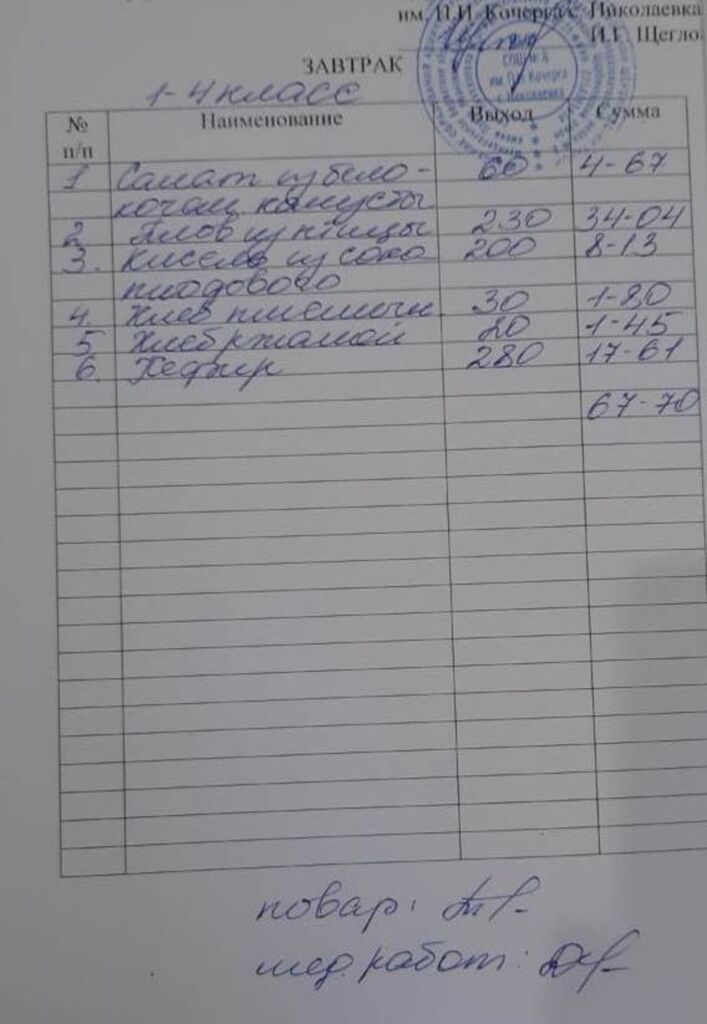 им. П.И. Кочерга с. Николаевка
И.Г. Щегло
СОШ № 6
им П.И. Кочерга
с. Николаевка
ЗАВТРАК
1-4 класс
№ п/п Наименование Выход Сумма
1 Салат из бело- 60 4-67
кочан. капусты
2 Плов из птицы 230 34-04
3. Кисель из сока 200 8-13
плодового
4. Хлеб пшеничн 30 1-80
5 Хлеб ржаной 20 1-45
6. Кефир 280 17-61
67-70
повар:
мед. работ: